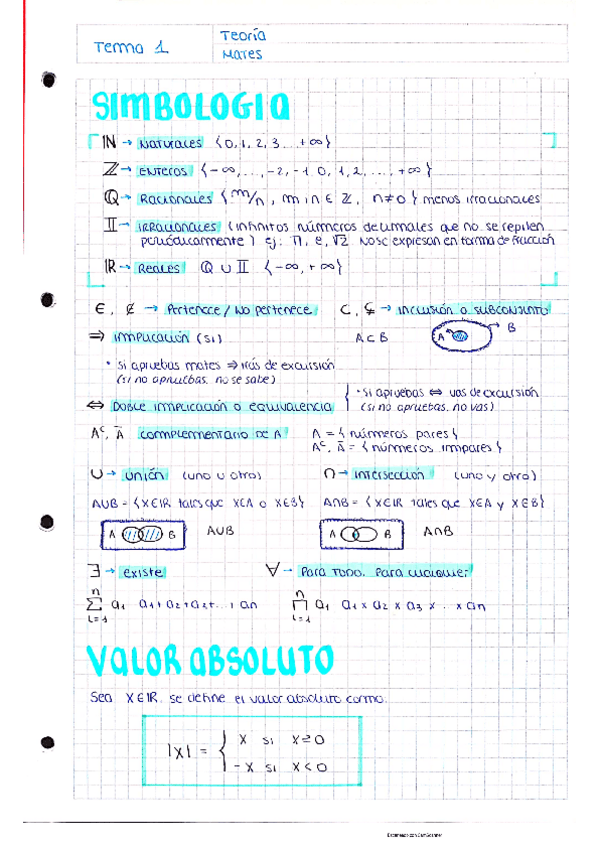 Tema 1
Teoría
Mates
SIMBOLOGIA
ℕ → Naturales {0, 1, 2, 3 ... +∞}
ℤ → Enteros {-∞, ..., -2, -1, 0, 1, 2, ..., +∞}
ℚ → Racionales {m/n, m, n ∈ ℤ, n≠0} menos irracionales
𝕀 → irracionales (infinitos números decimales que no se repiten
periódicamente) ej: π, e, √2 No se expresan en forma de fracción
ℝ → Reales ℚ ∪ 𝕀 {-∞, +∞}
∈, ∉ → Pertenece / No pertenece
⊂, ⊊ → inclusión o subconjunto
⇒ implicación (si)
A ⊂ B
A
B
• si apruebas mates ⇒ irás de excursión
(si no apruebas, no se sabe)
⇔ Doble implicación o equivalencia
• si apruebas ⇔ vas de excursión
(si no apruebas, no vas)
Aᶜ, Ā complementario de A
A = {números pares}
Aᶜ, Ā = {números impares}
∪ → unión (uno u otro)
∩ → intersección (uno y otro)
A∪B = {x∈ℝ tales que x∈A o x∈B}
A∩B = {x∈ℝ tales que x∈A y x∈B}
A B A∪B
A B A∩B
∃ → existe
∀ → Para todo. Para cualquier
n
∑ a₁ a₁+a₂+a₃+...+an
i=1
n
∏ a₁ a₁ x a₂ x a₃ x . x an
i=1
VALOR ABSOLUTO
Sea x∈ℝ. se define el valor absoluto como:
|x| = { x si x≥0
-x si x<0
Escaneado con CamScanner